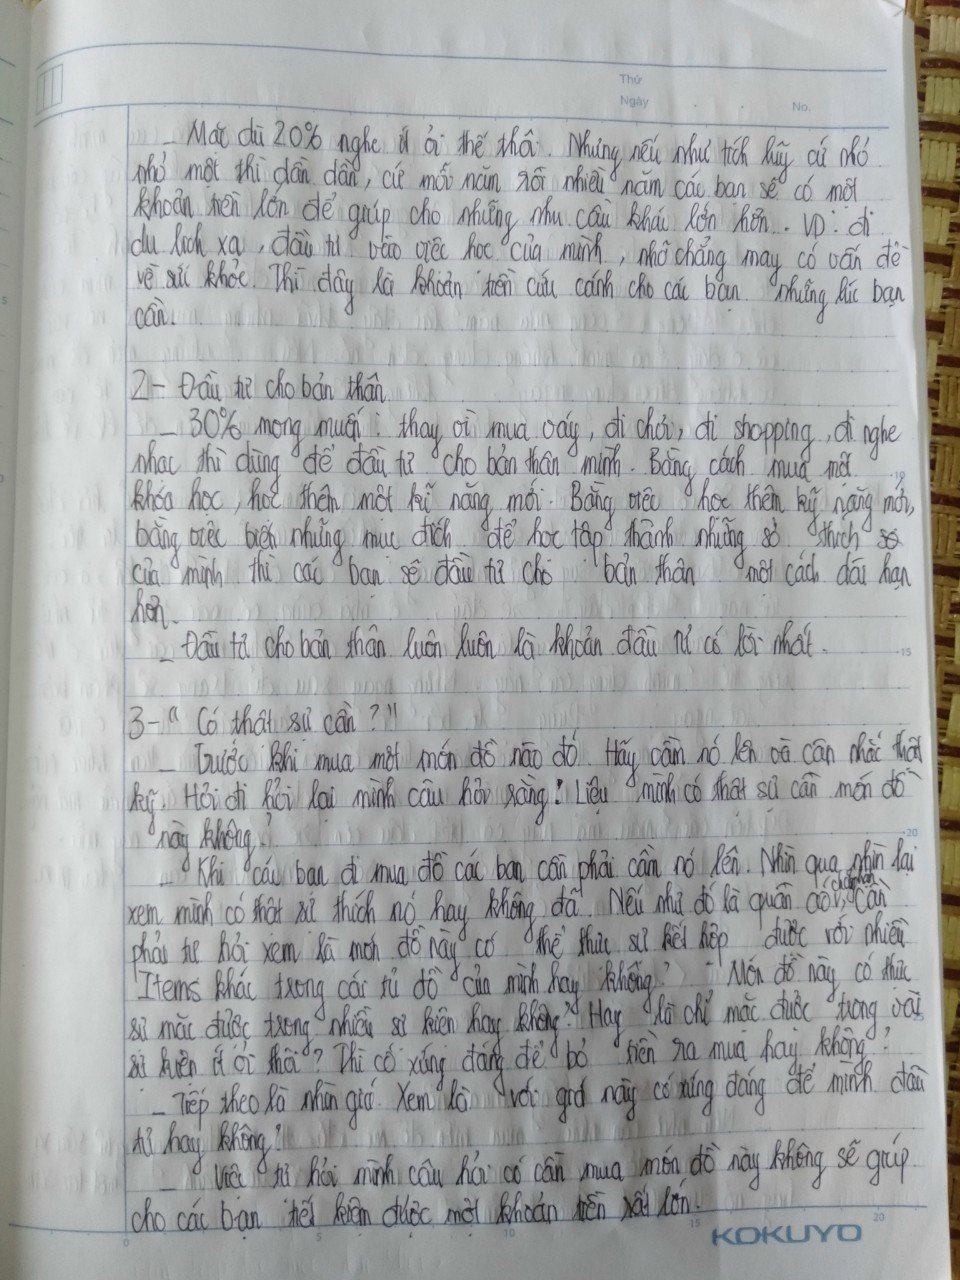 Thứ
Ngày . . No.
_ Mặc dù 20% nghe ít ỏi thế thôi. Nhưng nếu như tích lũy cứ nhỏ
nhỏ một thì dần dần, cứ mỗi năm rồi nhiều năm các bạn sẽ có một
khoản tiền lớn để giúp cho những nhu cầu khác lớn hơn. VD: đi
du lịch xa, đầu tư vào việc học của mình, nhỡ chẳng may có vấn đề
về sức khỏe. Thì đây là khoản tiền cứu cánh cho các bạn những lúc bạn
cần.
2- Đầu tư cho bản thân
_ 30% mong muốn: thay vì mua váy, đi chơi, đi shopping, đi nghe
nhạc thì dùng để đầu tư cho bản thân mình. Bằng cách mua một
khóa học, học thêm một kĩ năng mới. Bằng việc học thêm kỹ năng mới,
bằng việc biến những mục đích để học tập thành những sở thích
của mình thì các bạn sẽ đầu tư cho bản thân một cách dài hạn
hơn.
_ Đầu tư cho bản thân luôn luôn là khoản đầu tư có lời nhất.
3- " Có thật sự cần ? "
_ Trước khi mua một món đồ nào đó. Hãy cầm nó lên và cân nhắc thật
kỹ. Hỏi đi hỏi lại mình câu hỏi rằng: Liệu mình có thật sự cần món đồ
này không?
_ Khi các bạn đi mua đồ các bạn cần phải cầm nó lên. Nhìn qua nhìn lại
xem mình có thật sự thích nó hay không đã. Nếu như đó là quần áo, cần
phải tự hỏi xem là món đồ này có thể thực sự kết hợp được với nhiều
Items khác trong cái tủ đồ của mình hay không? Món đồ này có thực
sự mặc được trong nhiều sự kiện hay không? Hay là chỉ mặc được trong vài
sự kiện ít ỏi thôi? Thì có xứng đáng để bỏ tiền ra mua hay không?
_ Tiếp theo là nhìn giá. Xem là với giá này có xứng đáng để mình đầu
tư hay không?
_ Việc tự hỏi mình câu hỏi có cần mua món đồ này không sẽ giúp
cho các bạn tiết kiệm được một khoản tiền rất lớn.
KOKUYO